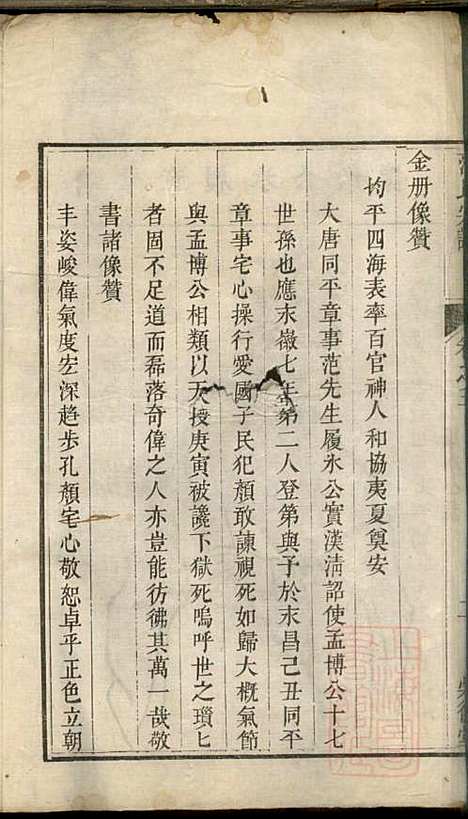 金册像贊
均平四海表率百官神人和協夷夏奠安
大唐同平章事范先生履氷公實漢淸詔使孟博公十七
世孫也應末嶽七年第二人登第與予於末昌己丑同平
章事宅心操行愛國子民犯顏敢諫視死如歸大概氣節
與孟博公相類以天授庚寅被讒下獄死嗚呼世之瑣匕
者固不足道而磊落奇偉之人亦豈能彷彿其萬一哉敬
書諸像贊
丰姿峻偉氣度宏深趋歩孔顏宅心敬恕卓乎正色立朝